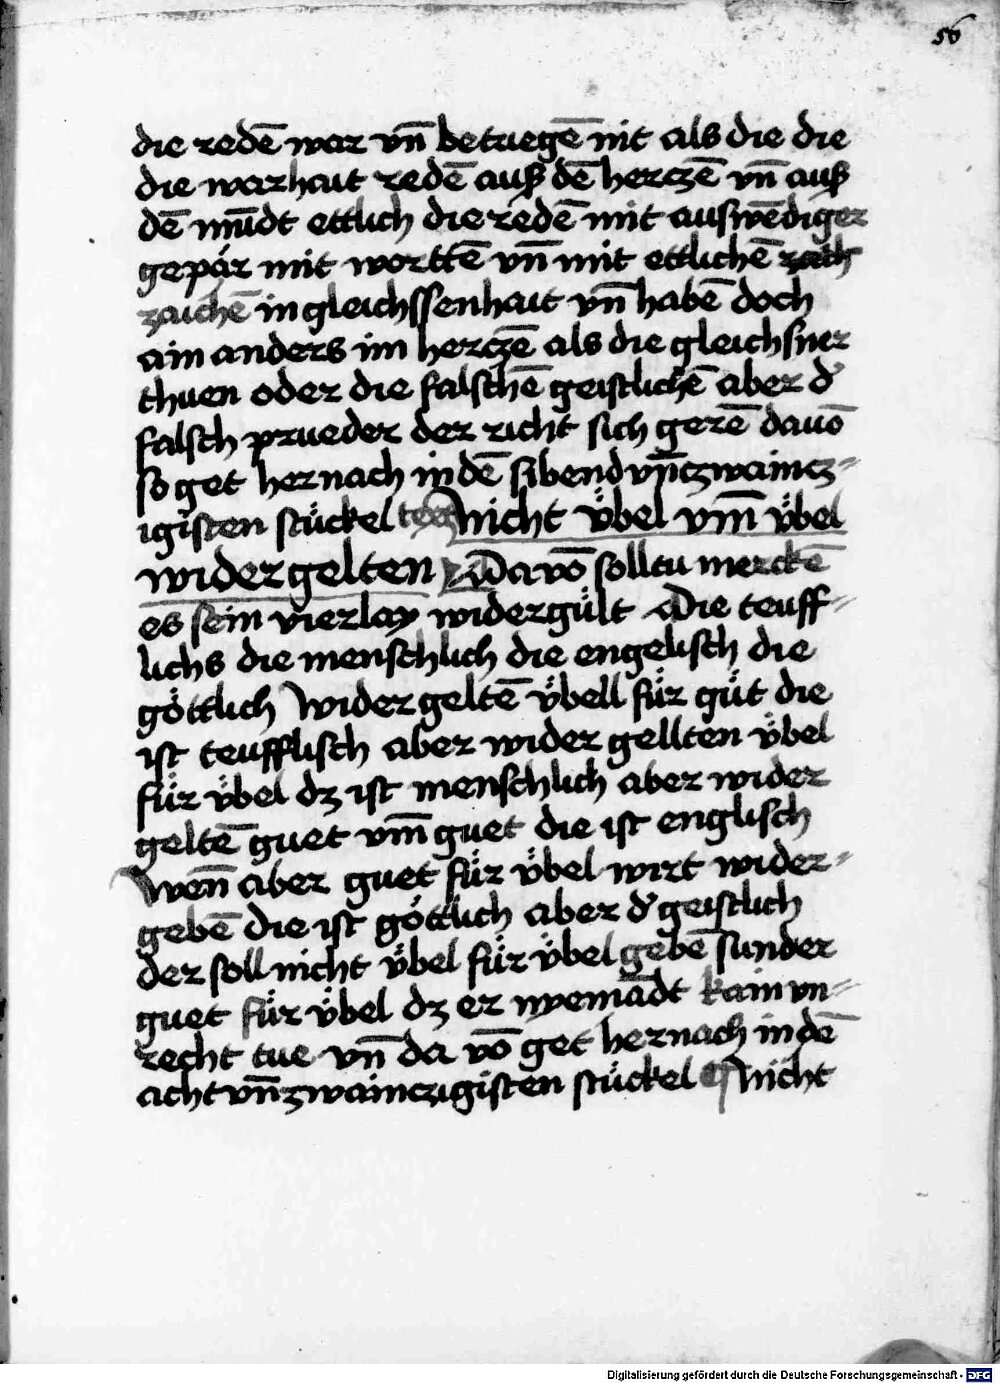 56
die redē war vn̄ betriegē nit als die die
die warhait redē auß dē herczē vn̄ auß
dē mūdt ettlich die redē mit auswēdiger
gepär mit worttē vn̄ mit ettlichē
zaichē in gleichssenhait vn̄ habē doch
ain anders im herczē als die gleichsner
thuen oder die falschē geistlichē aber d'
falsch prueder der richt sich gerē dauō
so get her nach in dē sibend vn̄czwaincz=
igisten stückel nicht v̈bel vm̄ v̈bel
wider gelten Da vō solltu merckē
es sein vierlay widergült Die teuff=
lichs die menschlich die engelisch die
göttlich Wider geltē v̈bell für güt die
ist teufflisch aber wider gellten v̈bel
für v̈bel dz ist menschlich aber wider
geltē guet vm̄ guet die ist englisch
Wen̄ aber guet für v̈bel wirt wider=
gebē die ist göttlich aber d' geistlich
der soll nicht v̈bel für v̈bel gebē sunder
guet für v̈bel dz er nyemādt kain vn=
recht tue vn̄ da vō get her nach in dē
acht vn̄zwainczigisten stückel Nicht
Digitalisierung gefördert durch die Deutsche Forschungsgemeinschaft - DFG